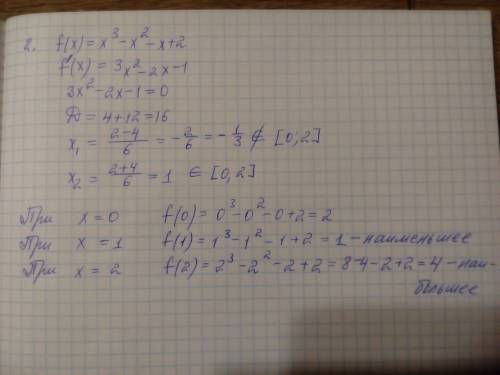 2. f(x) = x³ - x² - x + 2
f'(x) = 3x² - 2x - 1
3x² - 2x - 1 = 0
D = 4 + 12 = 16
x₁ = (2-4)/6 = -2/6 = -1/3 ∉ [0; 2]
x₂ = (2+4)/6 = 1 ∈ [0, 2]
При x = 0 f(0) = 0³ - 0² - 0 + 2 = 2
При x = 1 f(1) = 1³ - 1² - 1 + 2 = 1 - наименьшее
При x = 2 f(2) = 2³ - 2² - 2 + 2 = 8-4-2+2 = 4 - наи-
большее